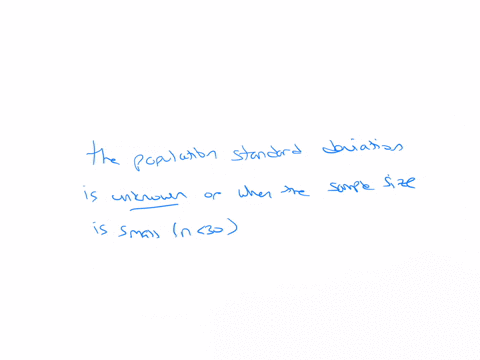 the population standard deviation
is unknown or when the sample size
is small (n<30)